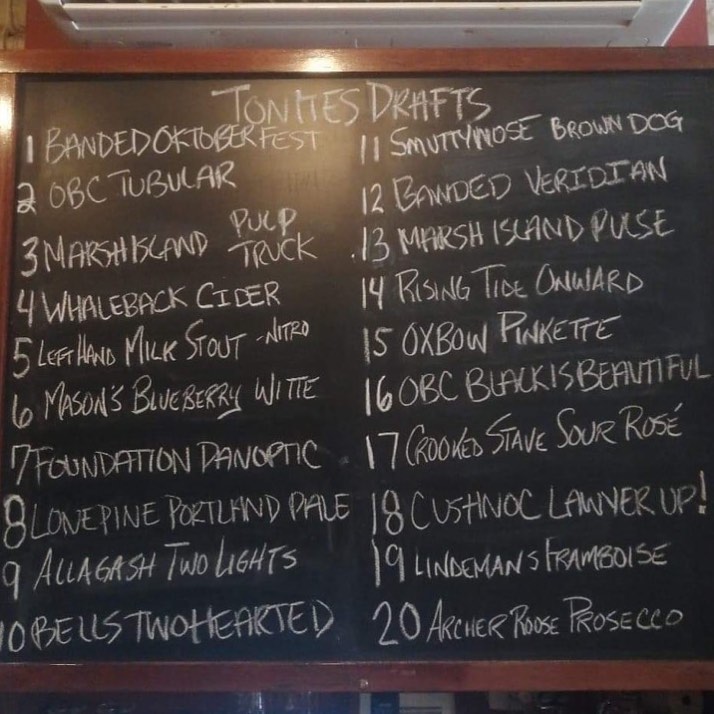 TONITES DRAFTS
1 BANDED OKTOBERFEST
2 OBC TUBULAR
3 MARSH ISLAND PULP TRUCK
4 WHALEBACK CIDER
5 LEFT HAND MILK STOUT -NITRO
6 MASON'S BLUEBERRY WITTE
7 FOUNDATION PANOPTIC
8 LONE PINE PORTLAND PALE
9 ALLAGASH TWO LIGHTS
10 BELLS TWO HEARTED
11 SMUTTYNOSE BROWN DOG
12 BANDED VERIDIAN
13 MARSH ISLAND PULSE
14 RISING TIDE ONWARD
15 OXBOW PINKETTE
16 OBC BLACK IS BEAUTIFUL
17 CROOKED STAVE SOUR ROSÉ
18 CUSHNOC LAWYER UP!
19 LINDEMANS FRAMBOISE
20 ARCHER ROOSE PROSECCO